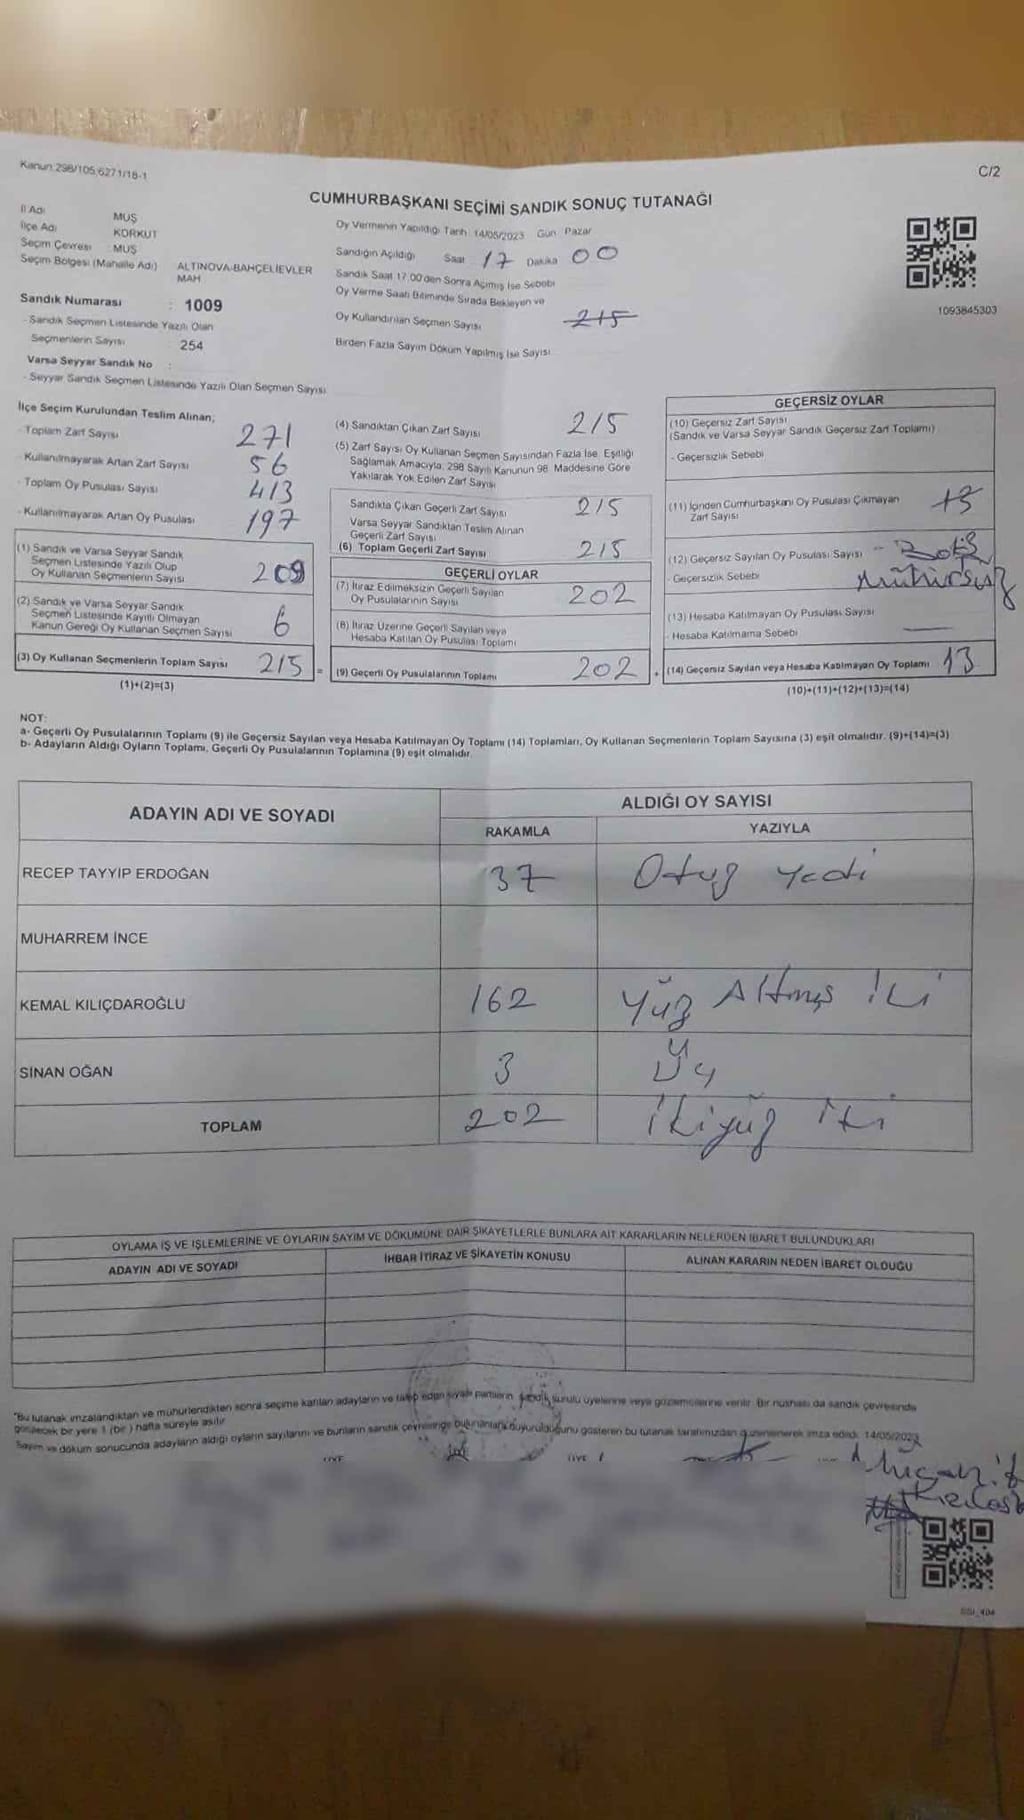 Kanun:298/105,6271/18-1
C/2
CUMHURBAŞKANI SEÇİMİ SANDIK SONUÇ TUTANAĞI
İl Adı MUŞ
İlçe Adı KORKUT
Seçim Çevresi MUŞ
Seçim Bölgesi (Mahalle Adı) ALTINOVA-BAHÇELİEVLER
MAH
Sandık Numarası : 1009
- Sandık Seçmen Listesinde Yazılı Olan
Seçmenlerin Sayısı 254
Varsa Seyyar Sandık No :
- Seyyar Sandık Seçmen Listesinde Yazılı Olan Seçmen Sayısı
Oy Vermenin Yapıldığı Tarih: 14/05/2023 Gün Pazar
Sandığın Açıldığı Saat 17 Dakika 00
Sandık Saat 17.00'den Sonra Açılmış İse Sebebi
Oy Verme Saati Bitiminde Sırada Bekleyen ve
Oy Kullandırılan Seçmen Sayısı 215
Birden Fazla Sayım Döküm Yapılmış İse Sayısı
1093845303
İlçe Seçim Kurulundan Teslim Alınan;
- Toplam Zarf Sayısı 271
- Kullanılmayarak Artan Zarf Sayısı 56
- Toplam Oy Pusulası Sayısı 413
- Kullanılmayarak Artan Oy Pusulası 197
(1) Sandık ve Varsa Seyyar Sandık
Seçmen Listesinde Yazılı Olup
Oy Kullanan Seçmenlerin Sayısı 209
(2) Sandık ve Varsa Seyyar Sandık
Seçmen Listesinde Kayıtlı Olmayan
Kanun Gereği Oy Kullanan Seçmen Sayısı 6
(3) Oy Kullanan Seçmenlerin Toplam Sayısı 215 =
(1)+(2)=(3)
(4) Sandıktan Çıkan Zarf Sayısı 215
(5) Zarf Sayısı Oy Kullanan Seçmen Sayısından Fazla İse, Eşitliği
Sağlamak Amacıyla, 298 Sayılı Kanunun 98. Maddesine Göre
Yakılarak Yok Edilen Zarf Sayısı
Sandıkta Çıkan Geçerli Zarf Sayısı 215
Varsa Seyyar Sandıktan Teslim Alınan
Geçerli Zarf Sayısı
(6) Toplam Geçerli Zarf Sayısı 215
GEÇERLİ OYLAR
(7) İtiraz Edilmeksizin Geçerli Sayılan
Oy Pusulalarının Sayısı 202
(8) İtiraz Üzerine Geçerli Sayılan veya
Hesaba Katılan Oy Pusulası Toplamı
(9) Geçerli Oy Pusulalarının Toplamı 202 +
GEÇERSİZ OYLAR
(10) Geçersiz Zarf Sayısı
(Sandık ve Varsa Seyyar Sandık Geçersiz Zarf Toplamı)
- Geçersizlik Sebebi
(11) İçinden Cumhurbaşkanı Oy Pusulası Çıkmayan
Zarf Sayısı 13
(12) Geçersiz Sayılan Oy Pusulası Sayısı
- Geçersizlik Sebebi Mühürsüz
(13) Hesaba Katılmayan Oy Pusulası Sayısı
- Hesaba Katılmama Sebebi
(14) Geçersiz Sayılan veya Hesaba Katılmayan Oy Toplamı 13
(10)+(11)+(12)+(13)=(14)
NOT:
a- Geçerli Oy Pusulalarının Toplamı (9) ile Geçersiz Sayılan veya Hesaba Katılmayan Oy Toplamı (14) Toplamları, Oy Kullanan Seçmenlerin Toplam Sayısına (3) eşit olmalıdır. (9)+(14)=(3)
b- Adayların Aldığı Oyların Toplamı, Geçerli Oy Pusulalarının Toplamına (9) eşit olmalıdır.
ADAYIN ADI VE SOYADI ALDIĞI OY SAYISI
RAKAMLA YAZIYLA
RECEP TAYYİP ERDOĞAN 37 Otuz yedi
MUHARREM İNCE
KEMAL KILIÇDAROĞLU 162 Yüz Altmış iki
SİNAN OĞAN 3 Üç
TOPLAM 202 İkiyüz iki
OYLAMA İŞ VE İŞLEMLERİNE VE OYLARIN SAYIM VE DÖKÜMÜNE DAİR ŞİKAYETLERLE BUNLARA AİT KARARLARIN NELERDEN İBARET BULUNDUKLARI
ADAYIN ADI VE SOYADI İHBAR İTİRAZ VE ŞİKAYETİN KONUSU ALINAN KARARIN NEDEN İBARET OLDUĞU
*Bu tutanak imzalandıktan ve mühürlendikten sonra seçime katılan adayların ve talep eden siyasi partilerin sandık kurulu üyelerine veya gözlemcilerine verilir. Bir nüshası da sandık çevresinde
görülecek bir yere 1 (bir) hafta süreyle asılır
Sayım ve döküm sonucunda adayların aldığı oyların sayılarını ve bunların sandık çevresinde bulunanlara duyurulduğunu gösteren bu tutanak tarafımızdan düzenlenerek imza edildi. 14/05/2023